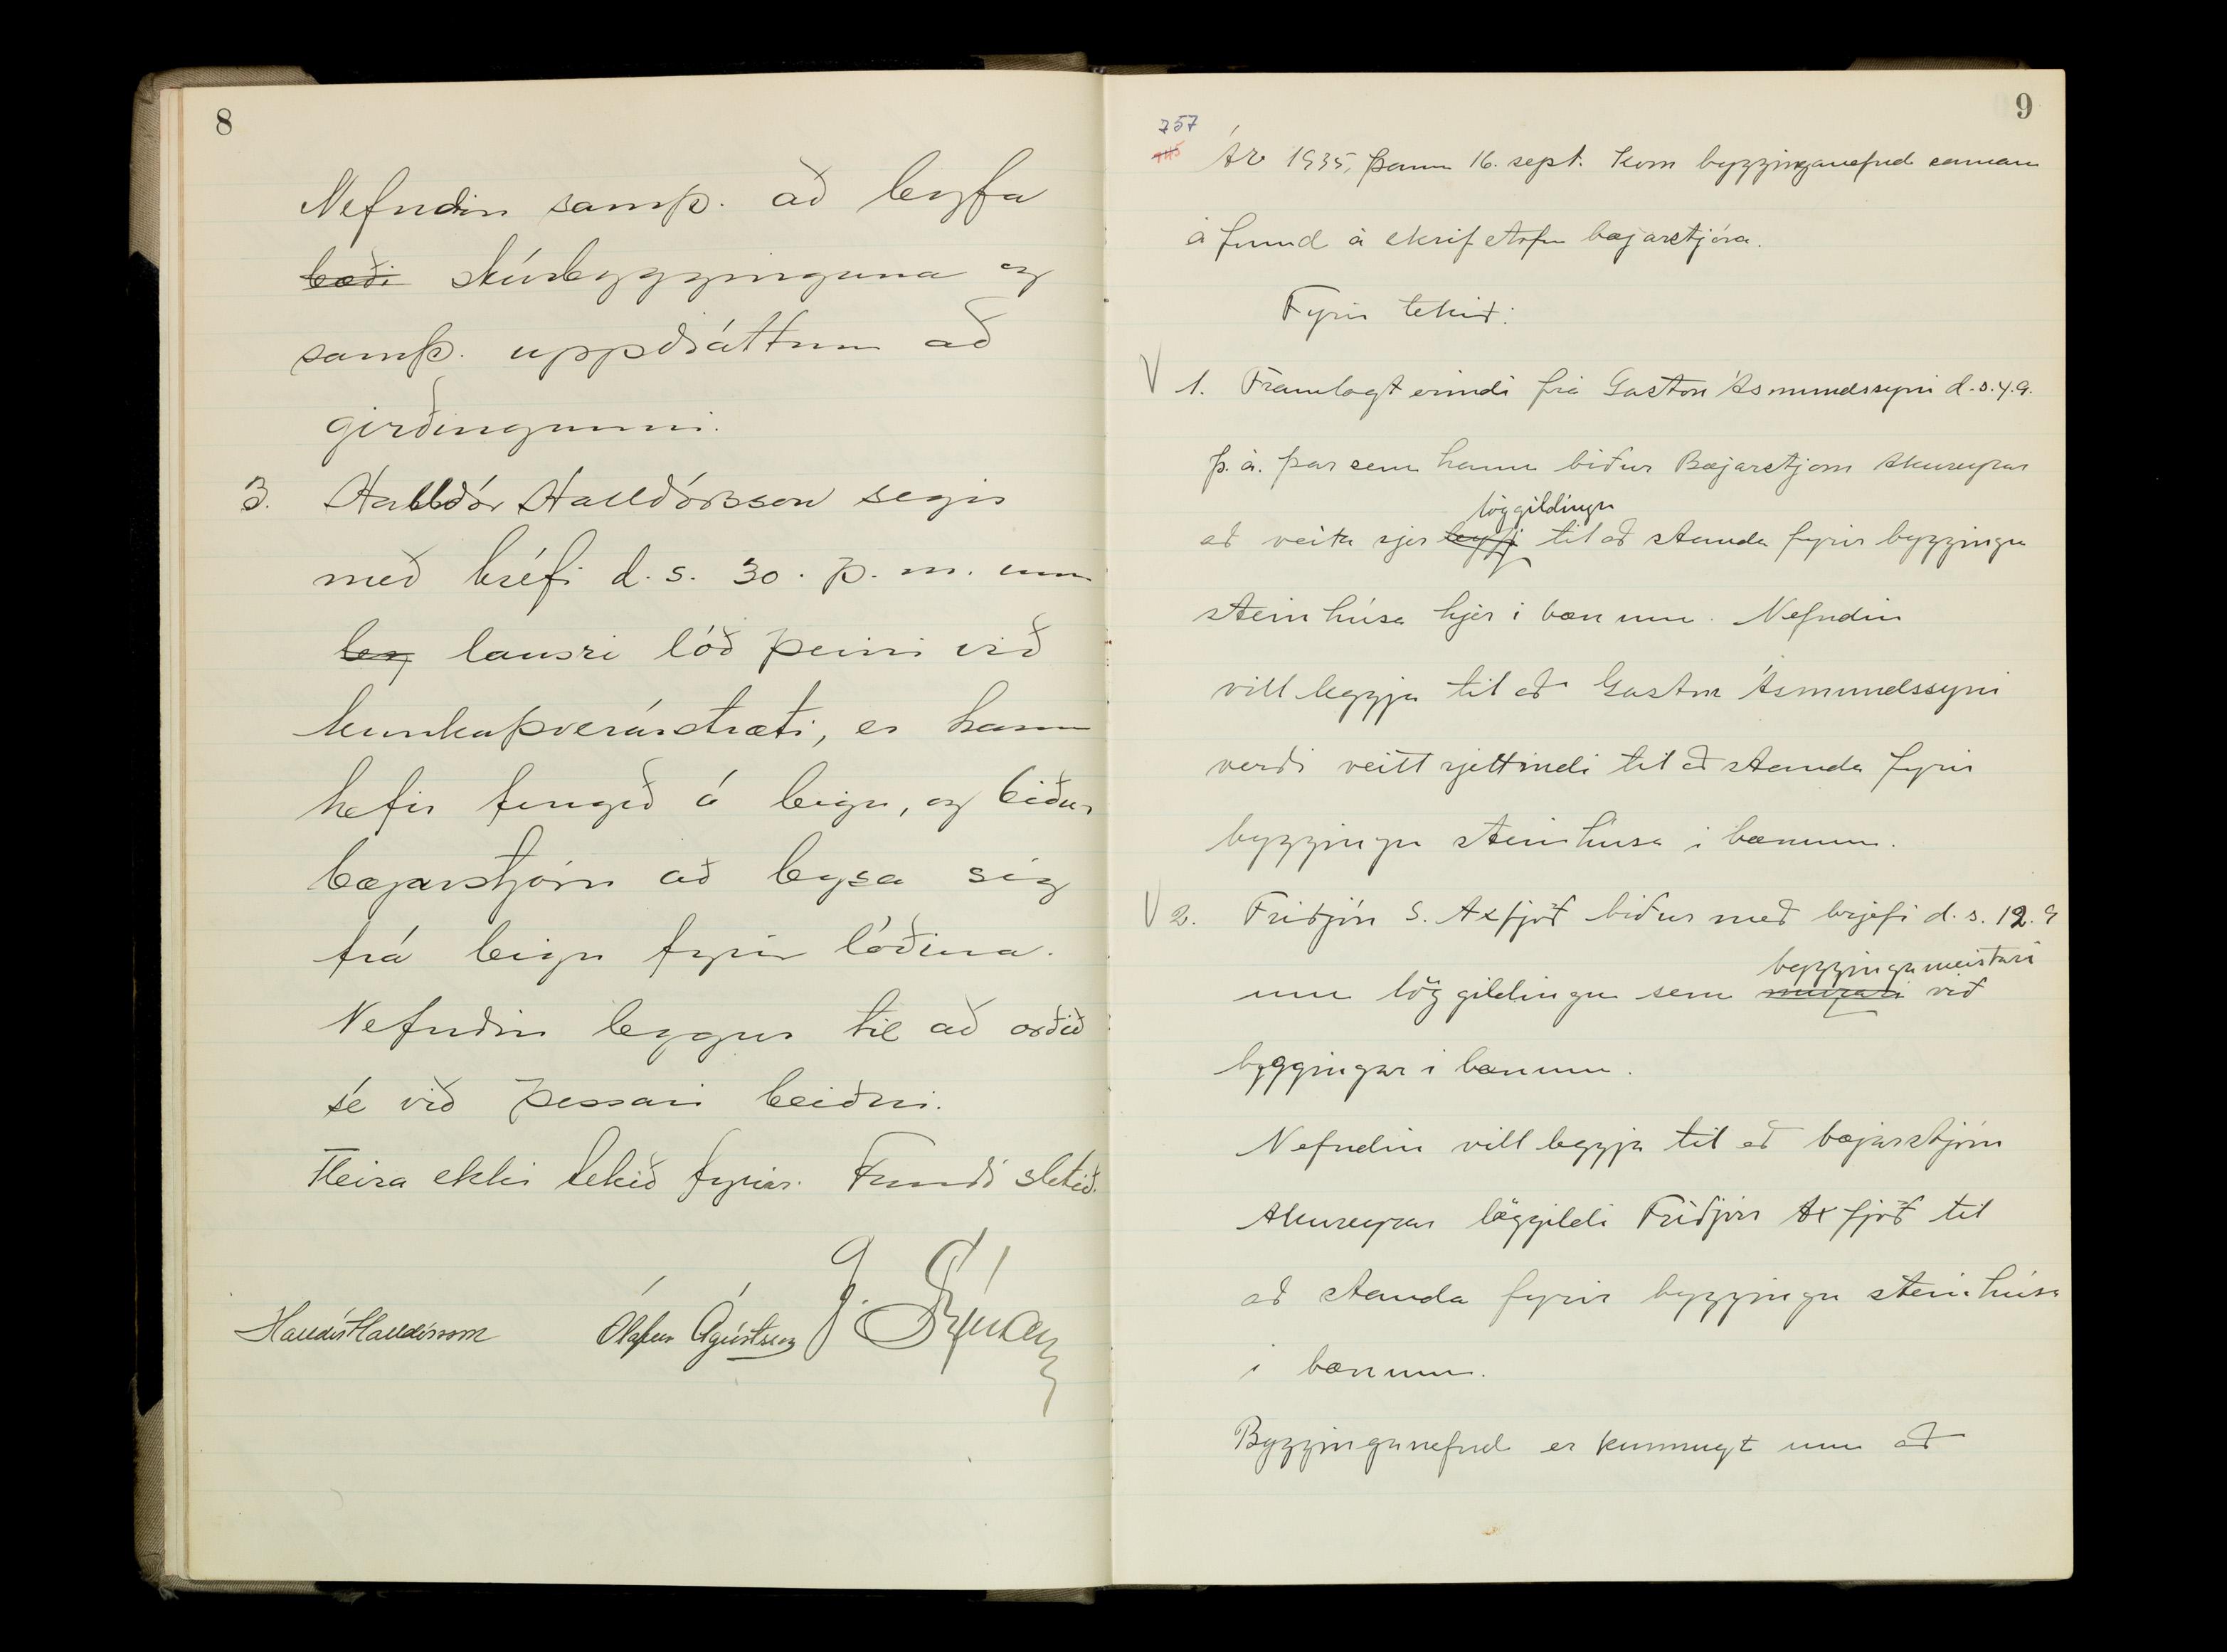 8
Nefndin samþ. að leyfa
bæði skúrbygginguna og
samþ. uppdráttum að
girðingunni.
3. Halldór Halldórsson segir
með bréfi d.s. 30. þ. m. um
leg lausri lóð þeirri við
Munkaþverárstræti, er hann
hefir fengið á leigu, og biður
bæjarstjórn að leysa sig
frá leigu fyrir lóðina.
Nefndin leggur til að orðið
sé við þessari beiðni.
Fleira ekki tekið fyrir. Fundi slitið.
Halldór Halldórsson Ólafur Ágústsson
9
757
Ár 1935, þann 16. sept. kom bygginganefnd saman
á fund á skrifstofu bæjarstjóra.
Fyrir tekið:
V 1. Framlagt erindi frá Gaston Ásmundssyni d.s. 4.9.
þ.á. þar sem hann biður Bæjarstjórn Akureyrar
löggildingu
að veita sjer leyfi til að standa fyrir byggingu
steinhúsa hjer í bænum. Nefndin
vill leggja til að Gaston Ásmundssyni
verði veitt rjettindi til að standa fyrir
byggingu steinhúsa í bænum.
V 2. Friðjón S. Axfjörð biður með brjefi d.s. 12.9
byggingameistari
um löggildingu sem múrari við
byggingar í bænum.
Nefndin vill leggja til að bæjarstjórn
Akureyrar löggildi Friðjón Axfjörð til
að standa fyrir byggingu steinhúsa
í bænum.
Bygginganefnd er kunnugt um að